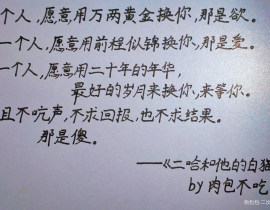 个人,愿意用万两黄金换你,那是欲。
一个人,愿意用前程似锦换你,那是爱。
一个人,愿意用二十年的年华,
最好的岁月来换你,来等你。
且不吭声,不求回报,也不求结果。
那是傻。
——《二哈和他的白猫
by 肉包不吃